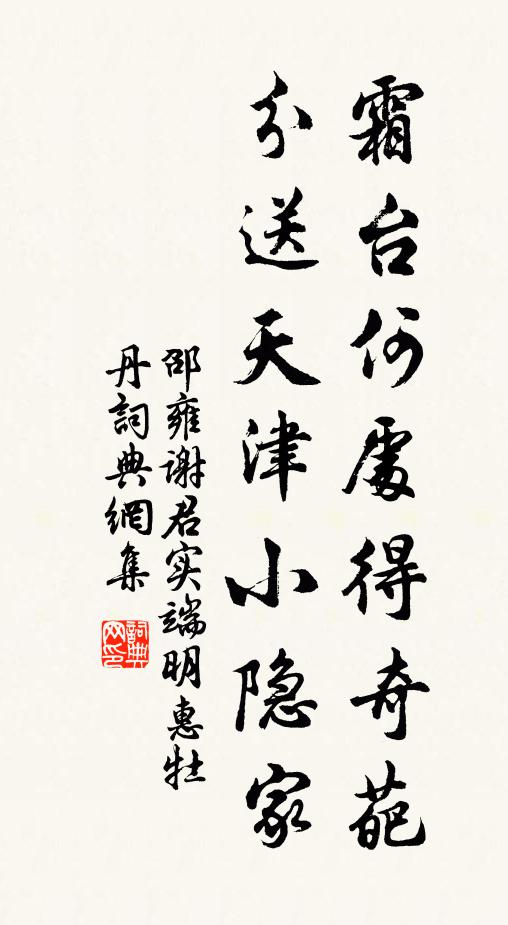 霜台何處得奇葩
分送天津小隐家
邵雍谢君实端明惠牡
丹詞典網集
詞典网印